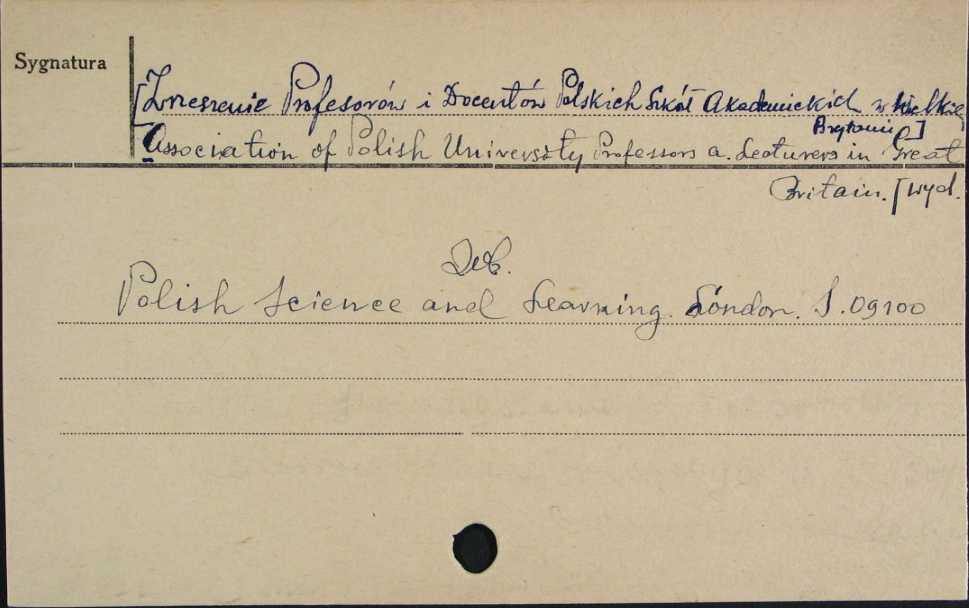 Sygnatura
[Zrzeszenie Profesorów i Docentów Polskich Szkół Akademickich w Wielkiej
Brytanii]
Association of Polish University Professors a. Lecturers in Great
Britain. [wyd.
Polish Science and Learning. London. S.09100